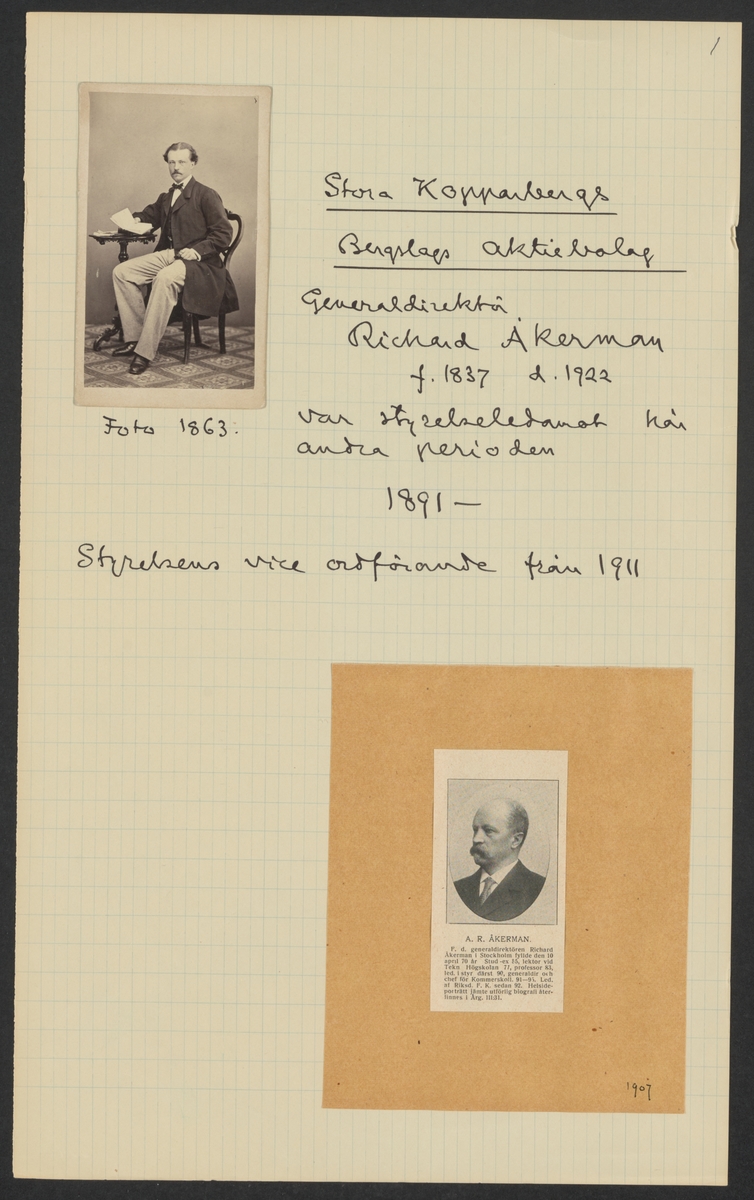 1
Stora Kopparbergs
Bergslags aktiebolag
Generaldirektör
Richard Åkerman
f. 1837 d. 1922
var styrelseledamot här
andra perioden
1891 —
Foto 1863.
Styrelsens vice ordförande från 1911
A. R. ÅKERMAN.
F. d. generaldirektören Richard
Åkerman i Stockholm fyllde den 10
april 70 år Stud-ex 55, lektor vid
Tekn Högskolan 77, professor 83,
led. i styr därst 90, generaldir och
chef för Kommerskoll. 91—9. Led.
af Riksd. F. K. sedan 92. Helside-
porträtt jämte utförlig biografi åter-
finnes i Årg. III:31.
1907